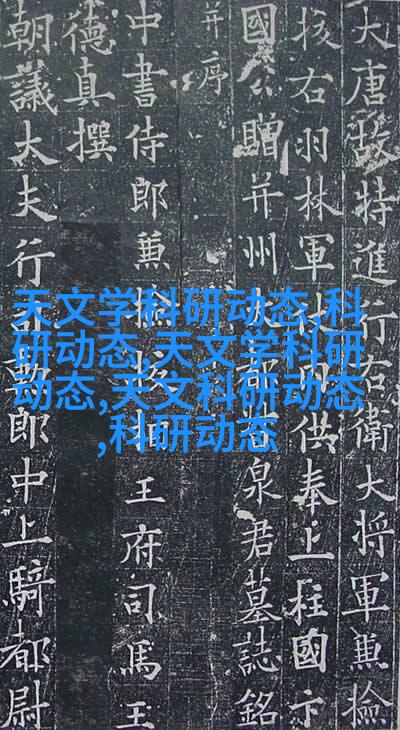 大唐故特進行右衛大將軍兼檢
校右羽林軍仗內供奉上柱國卞
國公贈并州大都督泉君墓誌銘
并序
中書侍郎兼檢校相王府司馬王
德真撰
朝議大夫行司勳郎中上騎都尉
天文学科研动态,科
研动态,天文学科研
动态,天文科研动态
,科研动态